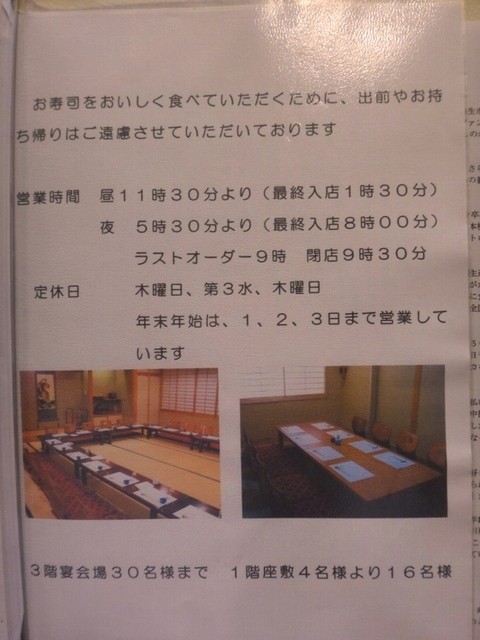 お寿司をおいしく食べていただくために、出前やお持
ち帰りはご遠慮させていただいております
営業時間　昼１１時３０分より（最終入店１時３０分）
夜　５時３０分より（最終入店８時００分）
ラストオーダー９時　閉店９時３０分
定休日　木曜日、第３水、木曜日
年末年始は、１、２、３日まで営業して
います
３階宴会場３０名様まで　１階座敷４名様より１６名様